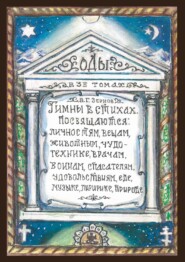 ОДЫ
В 33 ТОМАХ
Гимны в стихах.
Посвящаются:
личностям, вещам,
животным, чудо-
технике, врачам,
воинам, спасателям,
удовольствиям, еде,
музыке, лирике, природе